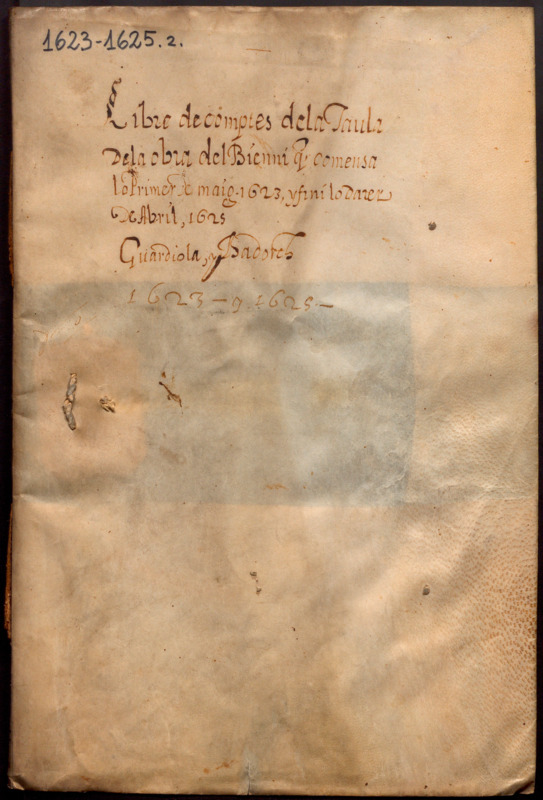 1623-1625. 2.
Libre de cómptes dela Taula
Dela obra del Bienni q̃ comensa
lo Primer de maig. 1623, y fini lo darer
De Abril, 1625
Guardiola, y Badorch
1623 - y. 1625 -